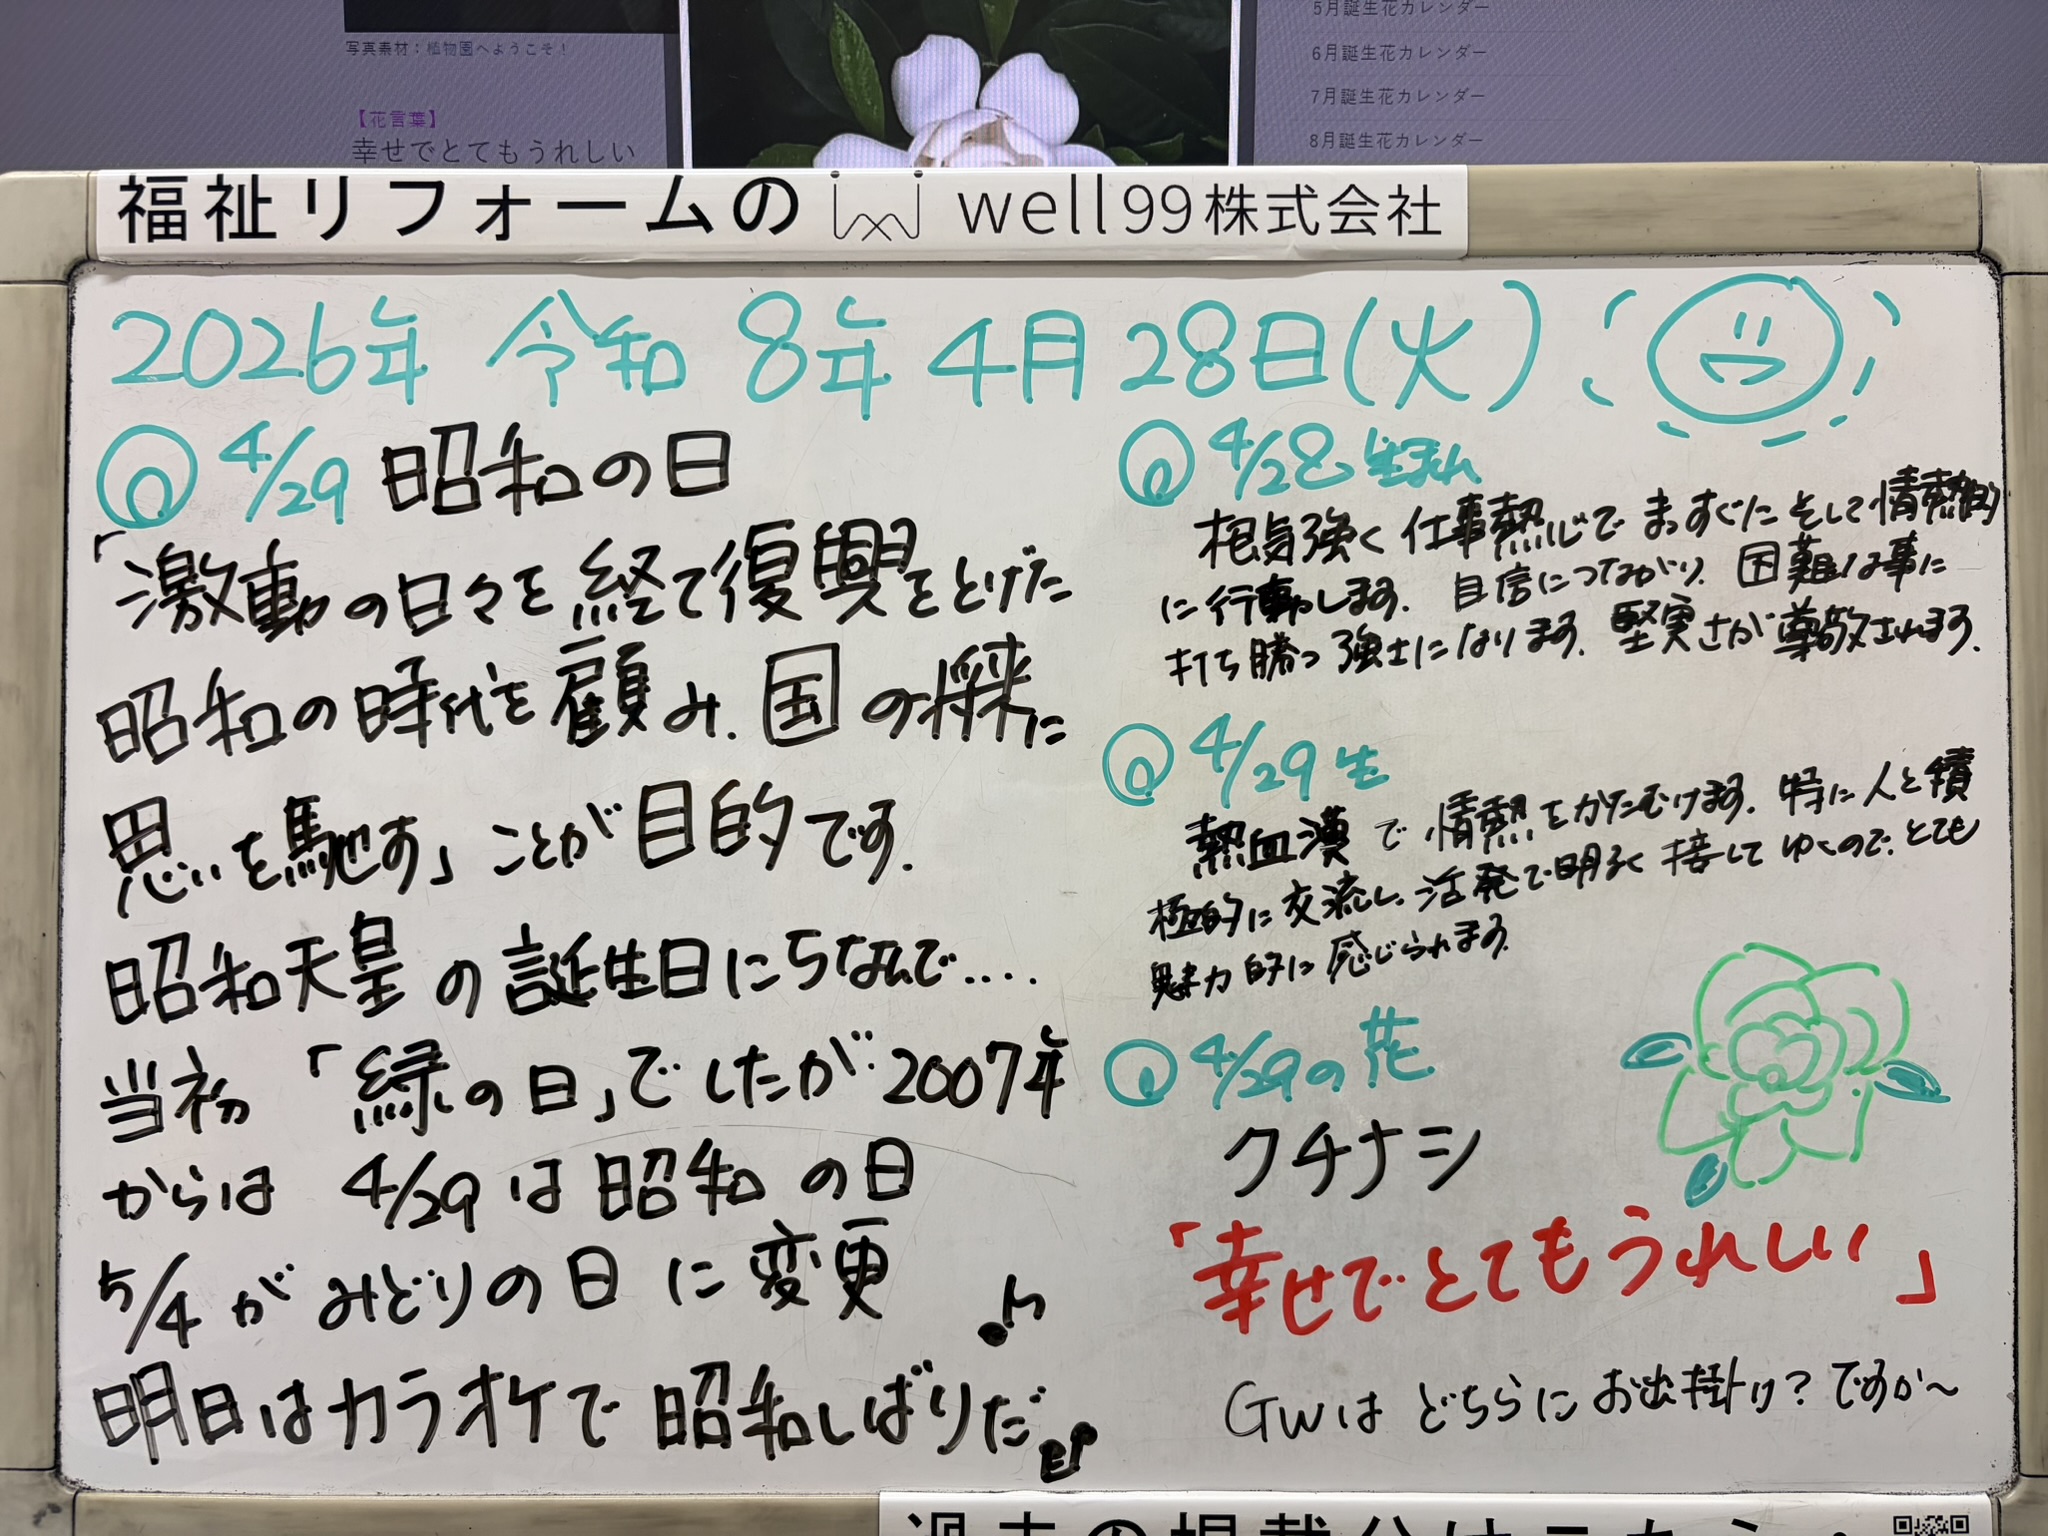 写真素材：植物園へようこそ！
【花言葉】
幸せでとてもうれしい
5月誕生花カレンダー
6月誕生花カレンダー
7月誕生花カレンダー
8月誕生花カレンダー
福祉リフォームの well99株式会社
2026年 令和 8年 4月 28日(火)
4/29 昭和の日
「激動の日々を経て復興をとげた
昭和の時代を顧み、国の将来に
思いを馳す」ことが目的です。
昭和天皇の誕生日にちなんで....
当初 「緑の日」でしたが、2007年
からは 4/29は昭和の日
5/4がみどりの日に変更
明日はカラオケで昭和しばりだ♪
4/28生まれ
根気強く仕事熱心でまっすぐたそして情熱的
に行動します。自信につながり、困難な事に
打ち勝つ強士になります。堅実さが尊敬されます。
4/29生
熱血漢で情熱をかたむけます。特に人と積
極的に交流し、活発で明るく接してゆくので、とても
魅力的に感じられます。
4/29の花
クチナシ
「幸せでとてもうれしい」
GWはどちらにお出掛け？ですか〜
過去の掲載分はこちら